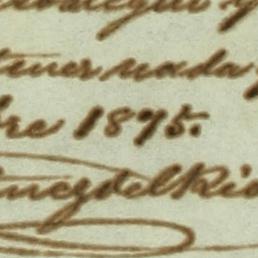 tener nada
bre 1895.
nez del Rio